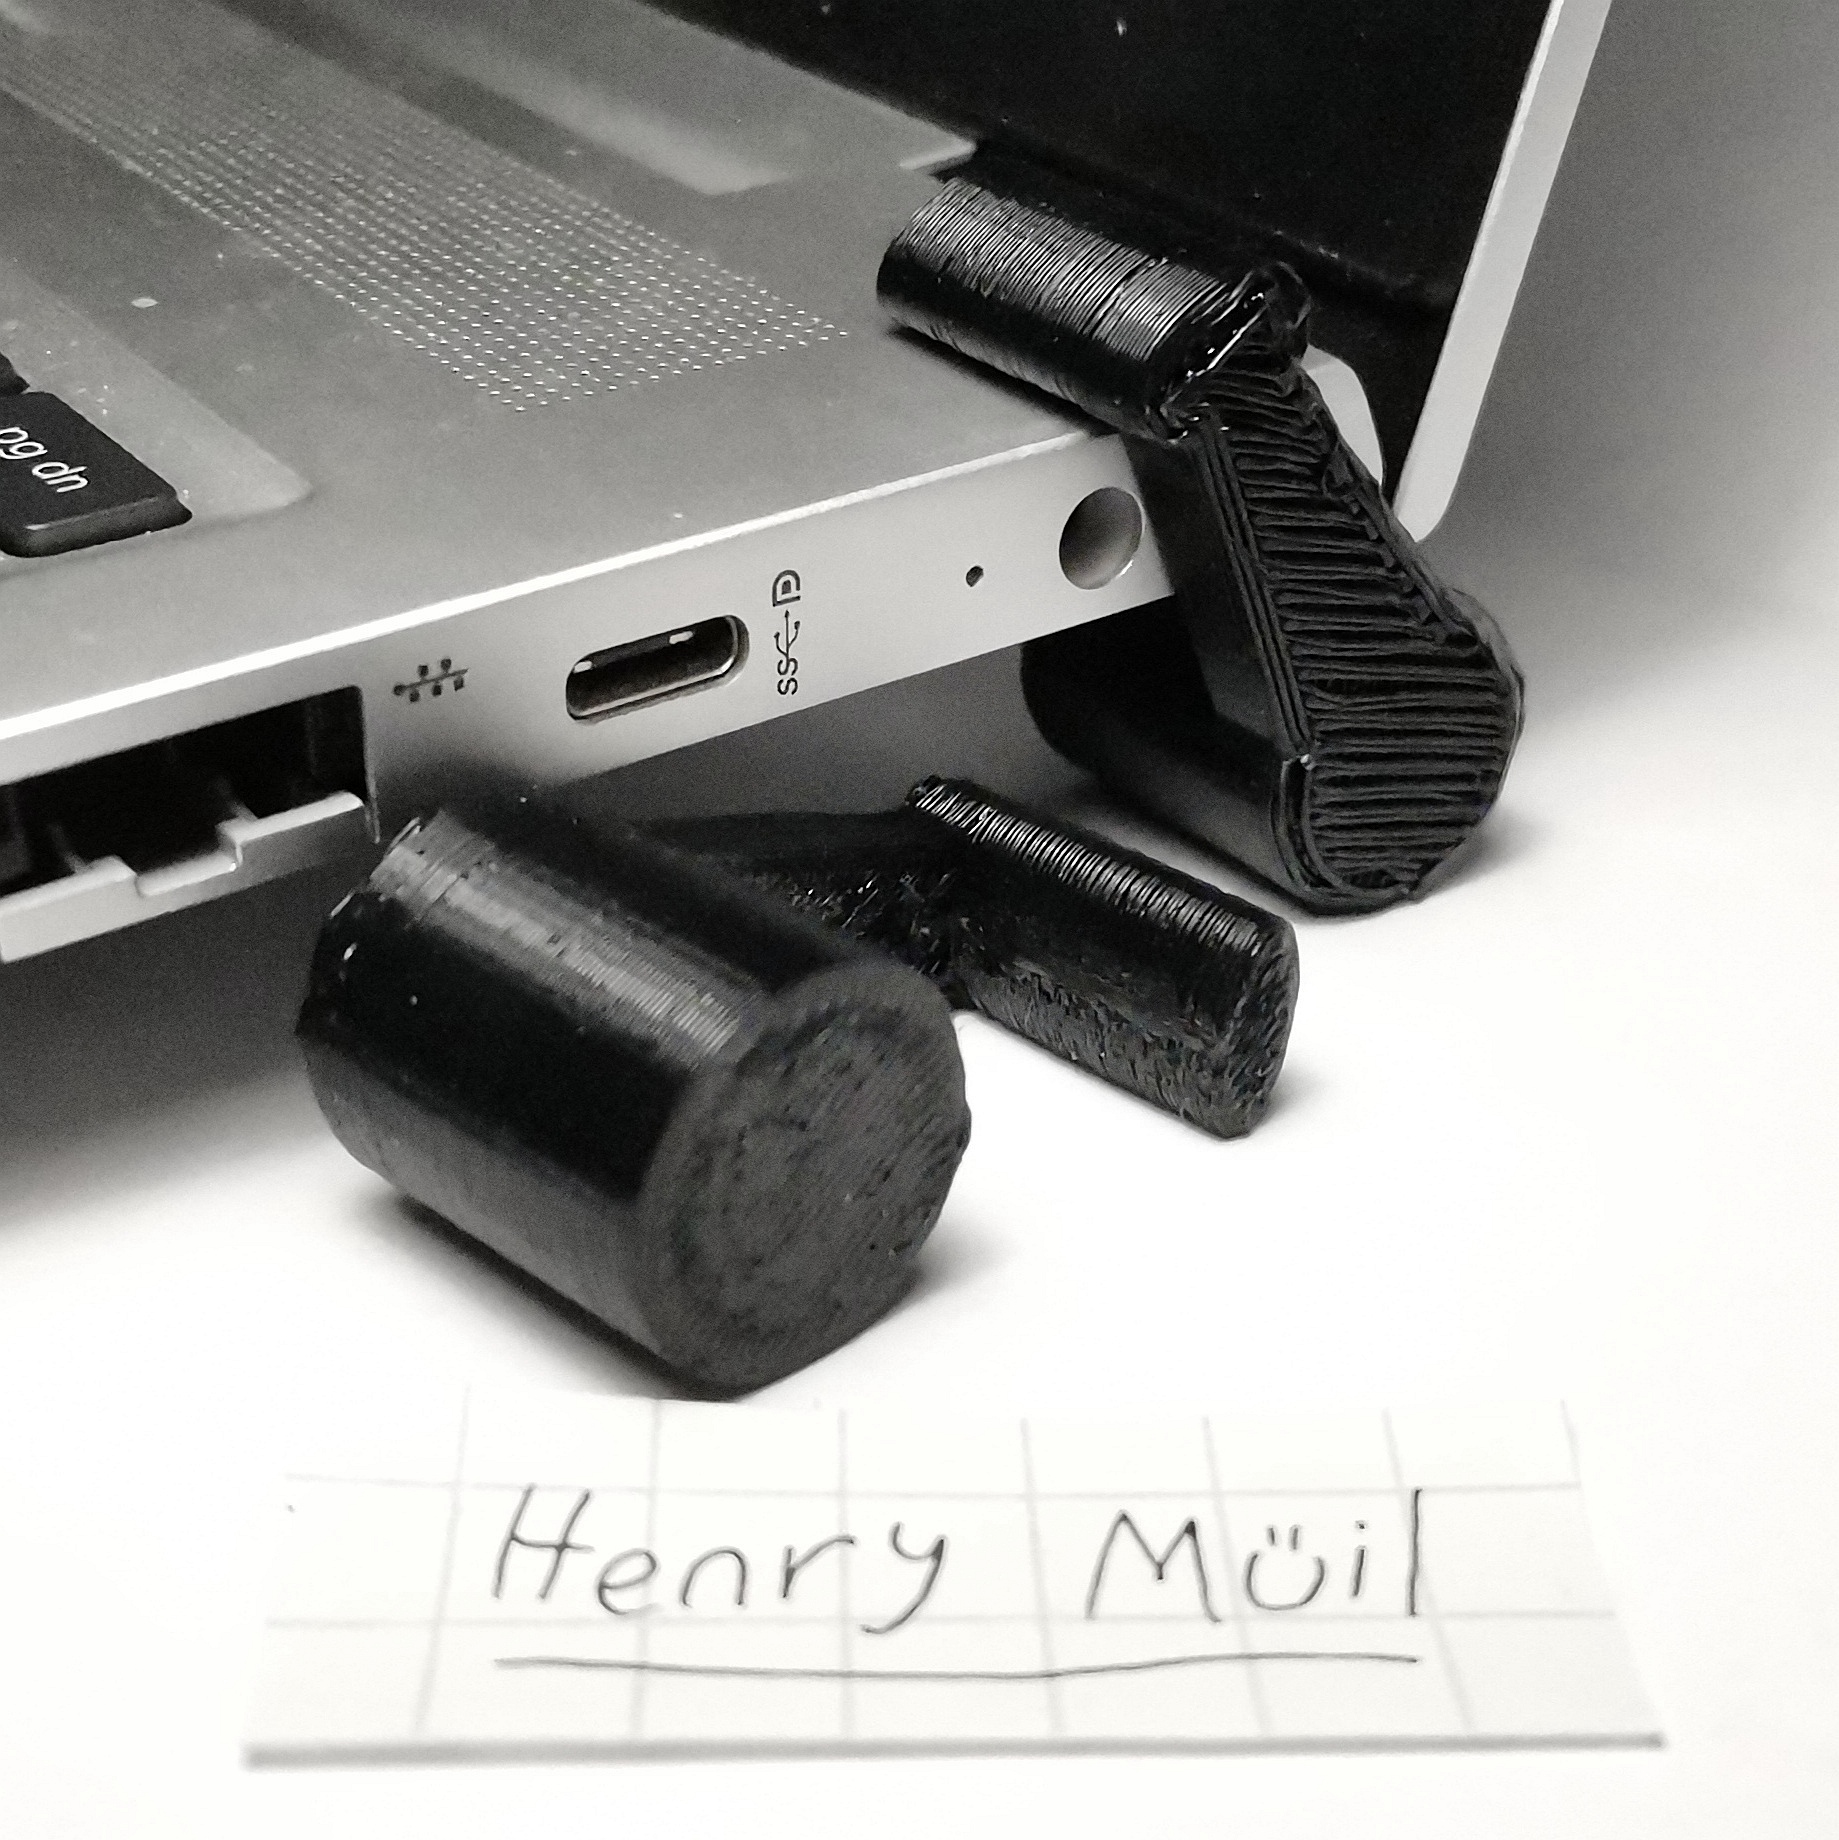 pg dn
SS
D
Henry Müil